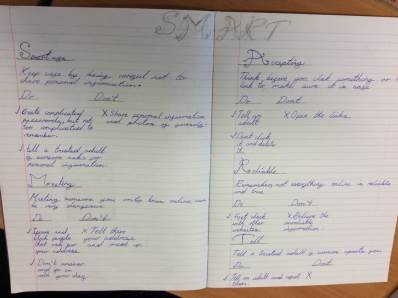 SMART
Keep safe by being careful not to
share personal information.
Do Don't
✓ Create complicated X Share personal information
passwords but not and photos of yourself
too complicated to
remember.
✓ Tell a trusted adult
if someone asks for
personal information.
Meeting
Meeting someone you online can
be dangerous
Do Don't
✓ Ignore and X Tell them
block people your address
that ask you and meet up
your address.
✓ Don't answer
and go on
with your day.
Accepting
Think before you click something or
link to make sure it is safe
Do Dont
✓ Tell an X Open the links.
adult
✓ Dont click
it and delete
it.
Reliable
Remember not everything online is reliable
and true
Do Don't
✓ Fact check X Believe the
with other
websites information
Tell
Tell a trusted adult if someone upsets you
Do Dont
✓ Tell an adult and report X
them